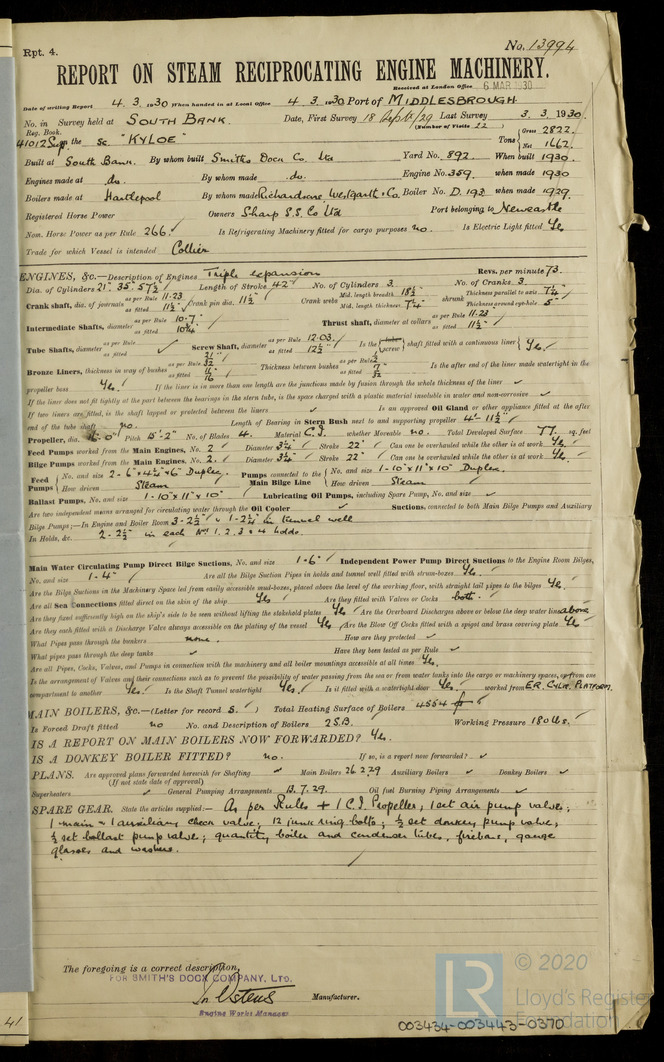 Rpt. 4.
No. 13994
REPORT ON STEAM RECIPROCATING ENGINE MACHINERY.
Received at London Office 6 MAR 1930
Date of writing Report 4. 3. 1930 When handed in at Local Office 4. 3. 1930 Port of MIDDLESBROUGH
No. in Survey held at SOUTH BANK. Date, First Survey 18 Sept/29 Last Survey 3. 3. 1930.
Reg. Book. (Number of Visits 22)
41012 Supp the Sc. "KYLOE" Tons { Gross 2822. Net 1662.
Built at South Bank. By whom built Smiths Dock Co. Ltd Yard No. 892. When built 1930.
Engines made at do. By whom made do. Engine No. 359. when made 1930
Boilers made at Hartlepool By whom made Richardsons, Westgarth & Co. Boiler No. D. 193 when made 1929.
Registered Horse Power Owners Sharp S.S. Co Ltd Port belonging to Newcastle
Nom. Horse Power as per Rule 266. Is Refrigerating Machinery fitted for cargo purposes no. Is Electric Light fitted Yes
Trade for which Vessel is intended Collier
ENGINES, &c.—Description of Engines Triple expansion Revs. per minute 73.
Dia. of Cylinders 21" 35" 57½" Length of Stroke 42" No. of Cylinders 3 No. of Cranks 3
Crank shaft, dia. of journals as per Rule 11.23 as fitted 11½" Crank pin dia. 11½" Crank webs Mid. length breadth 18½" Mid. length thickness 7¼" shrunk Thickness parallel to axis 7¼" Thickness around eye-hole 5"
Intermediate Shafts, diameter as per Rule 10.7" as fitted 10¾" Thrust shaft, diameter at collars as per Rule 11.23 as fitted 11½"
Tube Shafts, diameter as per Rule as fitted Screw Shaft, diameter as per Rule 12.03. as fitted 12½" Is the { tube screw } shaft fitted with a continuous liner { Yes.
Bronze Liners, thickness in way of bushes as per Rule as fitted Thickness between bushes as per Rule as fitted Is the after end of the liner made watertight in the
propeller boss Yes. If the liner is in more than one length are the junctions made by fusion through the whole thickness of the liner
If the liner does not fit tightly at the part between the bearings in the stern tube, is the space charged with a plastic material insoluble in water and non-corrosive
If two liners are fitted, is the shaft lapped or protected between the liners Is an approved Oil Gland or other appliance fitted at the after
end of the tube shaft no. Length of Bearing in Stern Bush next to and supporting propeller 4'-11½"
Propeller, dia. 16'-0" Pitch 15'-2" No. of Blades 4. Material C.I. whether Moveable no. Total Developed Surface 77. sq. feet
Feed Pumps worked from the Main Engines, No. 2 Diameter 3¼" Stroke 22" Can one be overhauled while the other is at work Yes.
Bilge Pumps worked from the Main Engines, No. 2. Diameter 3¾" Stroke 22" Can one be overhauled while the other is at work Yes.
Feed Pumps { No. and size 2-6"x4¼"x6" Duplex. Pumps connected to the Main Bilge Line { No. and size 1-10"x11"x10" Duplex.
How driven Steam How driven Steam
Ballast Pumps, No. and size 1-10"x11"x10" Lubricating Oil Pumps, including Spare Pump, No. and size
Are two independent means arranged for circulating water through the Oil Cooler Suctions, connected to both Main Bilge Pumps and Auxiliary
Bilge Pumps;—In Engine and Boiler Room 3-2½" & 1-2½" in tunnel well
In Holds, &c. 2-2½" in each Nos 1, 2, 3 & 4 holds.
Main Water Circulating Pump Direct Bilge Suctions, No. and size 1-6" Independent Power Pump Direct Suctions to the Engine Room Bilges,
No. and size 1-4" Are all the Bilge Suction Pipes in holds and tunnel well fitted with strum-boxes Yes.
Are the Bilge Suctions in the Machinery Space led from easily accessible mud-boxes, placed above the level of the working floor, with straight tail pipes to the bilges Yes.
Are all Sea Connections fitted direct on the skin of the ship Yes Are they fitted with Valves or Cocks both.
Are they fixed sufficiently high on the ship's side to be seen without lifting the stokehold plates Yes Are the Overboard Discharges above or below the deep water line above
Are they each fitted with a Discharge Valve always accessible on the plating of the vessel Yes Are the Blow Off Cocks fitted with a spigot and brass covering plate Yes
What Pipes pass through the bunkers none. How are they protected
What pipes pass through the deep tanks Have they been tested as per Rule
Are all Pipes, Cocks, Valves, and Pumps in connection with the machinery and all boiler mountings accessible at all times Yes.
Is the arrangement of Valves and their connections such as to prevent the possibility of water passing from the sea or from water tanks into the cargo or machinery spaces, or from one
compartment to another Yes. Is the Shaft Tunnel watertight Yes. Is it fitted with a watertight door Yes. worked from E.R. CYLR. PLATFORM.
MAIN BOILERS, &c.—(Letter for record S.) Total Heating Surface of Boilers 4554
Is Forced Draft fitted no No. and Description of Boilers 2 S.B. Working Pressure 180 lbs.
IS A REPORT ON MAIN BOILERS NOW FORWARDED? Yes.
IS A DONKEY BOILER FITTED? no. If so, is a report now forwarded?
PLANS. Are approved plans forwarded herewith for Shafting Main Boilers 26.2.29 Auxiliary Boilers Donkey Boilers
(If not state date of approval)
Superheaters General Pumping Arrangements 13.7.29. Oil fuel Burning Piping Arrangements
SPARE GEAR. State the articles supplied:— As per Rules + 1 C.I. Propeller, 1 set air pump valves;
1 main & 1 auxiliary check valve; 12 junk ring bolts; ½ set donkey pump valves,
½ set ballast pump valves; quantity boiler and condenser tubes, firebars, gauge
glasses and washers.
The foregoing is a correct description,
FOR SMITH'S DOCK COMPANY, LTD.
Manufacturer.
Engine Works Manager
41
LR
© 2020
Lloyd's Register
Foundation
003434-003443-0370